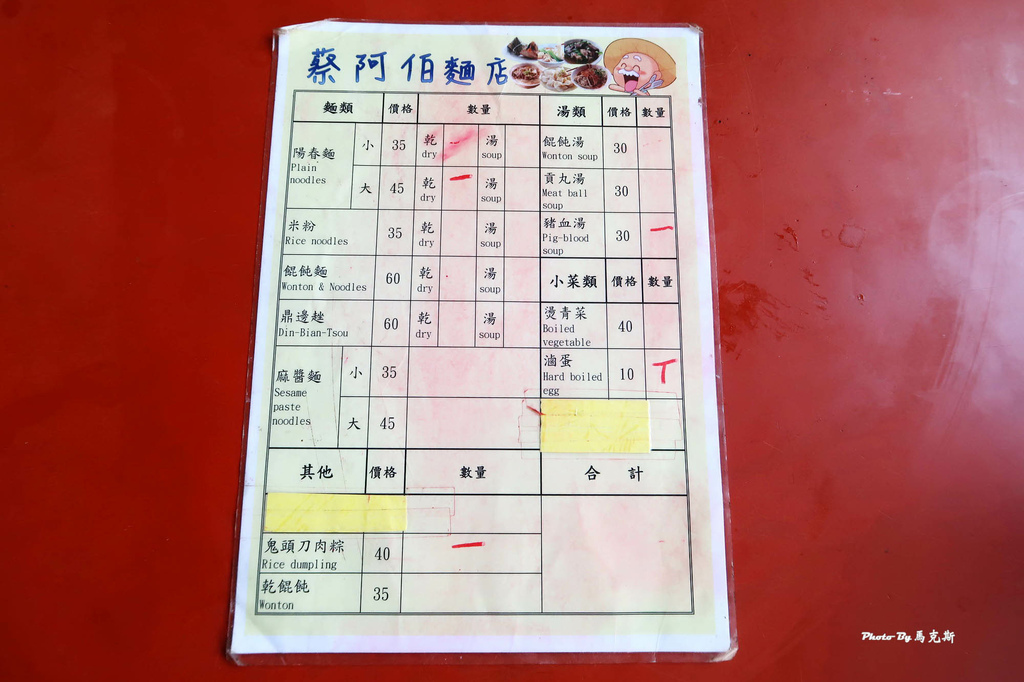 蔡阿伯麵店
麵類 價格 數量
陽春麵
Plain
noodles
小 35 乾 dry 一 湯 soup
大 45 乾 dry 一 湯 soup
米粉
Rice noodles
35 乾 dry 湯 soup
餛飩麵
Wonton & Noodles
60 乾 dry 湯 soup
鼎邊趖
Din-Bian-Tsou
60 乾 dry 湯 soup
麻醬麵
Sesame
paste
noodles
小 35
大 45
其他 價格 數量
鬼頭刀肉粽
Rice dumpling
40 一
乾餛飩
Wonton
35
湯類 價格 數量
餛飩湯
Wonton soup
30
貢丸湯
Meat ball
soup
30
豬血湯
Pig-blood
soup
30 一
小菜類 價格 數量
燙青菜
Boiled
vegetable
40
滷蛋
Hard boiled
egg
10 丅
合 計
Photo By 馬克斯